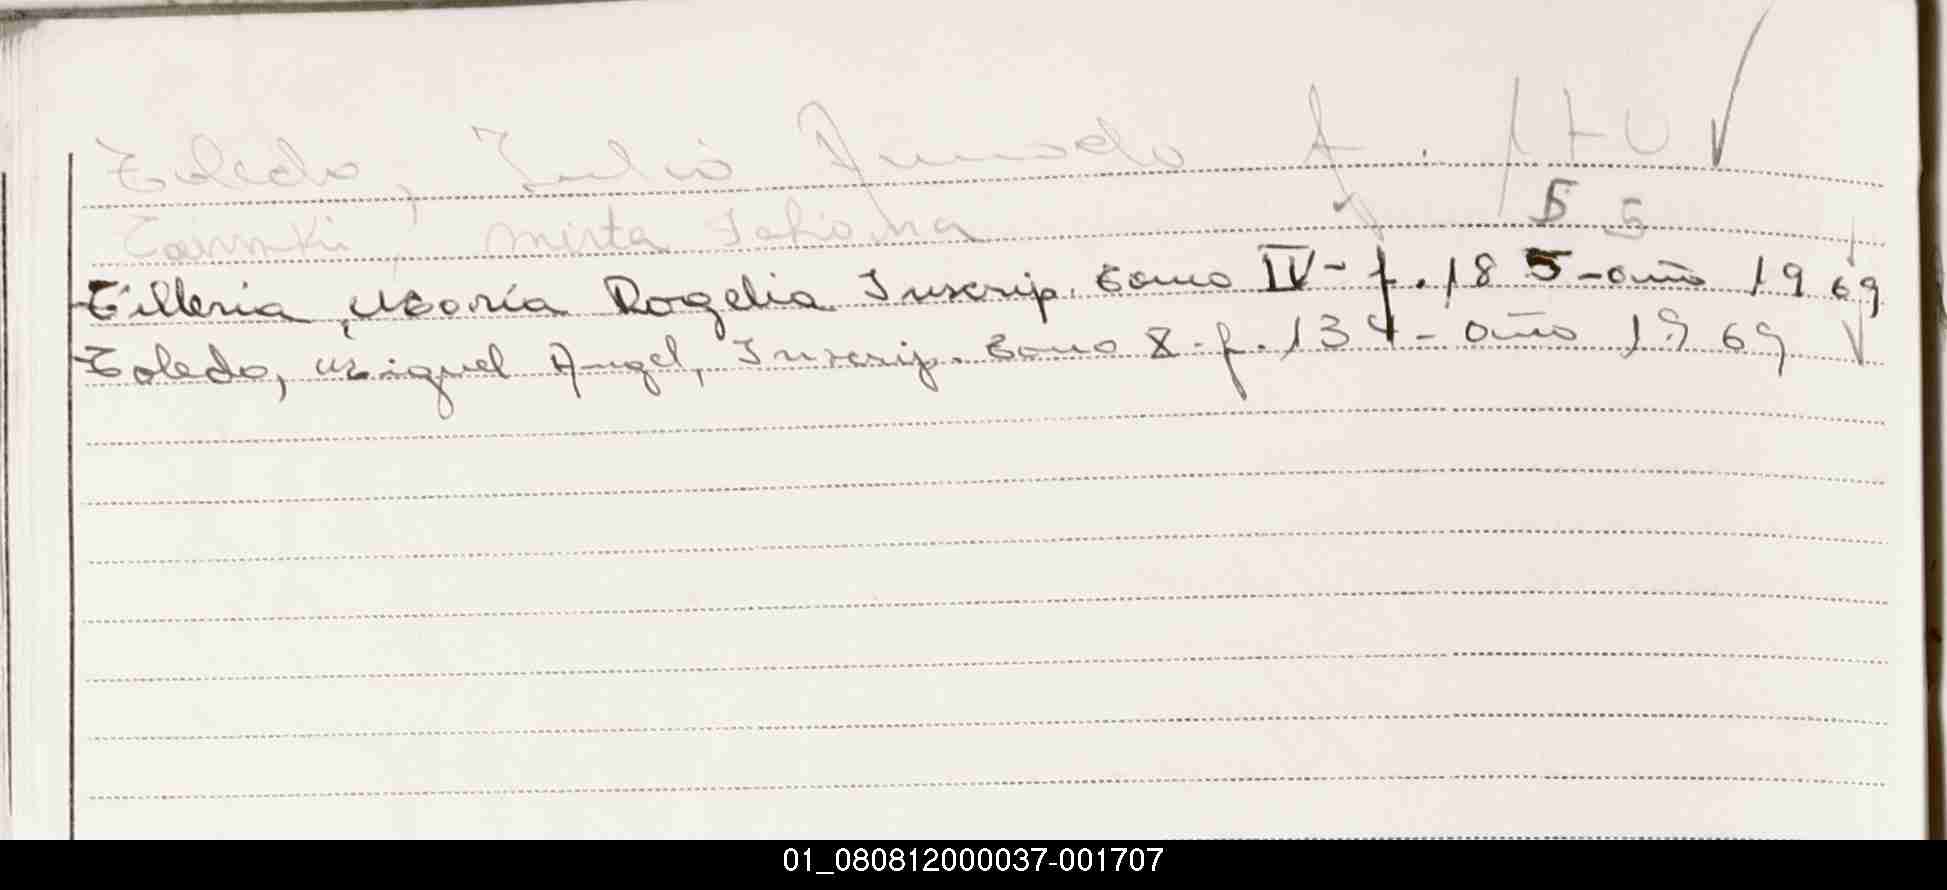 Toledo, Julio Armado f. 170
Mirta f 55
Tilleria, María Rogelia Inscrip. tomo IV - f. 185 - año 1969
Toledo, Miguel Angel, Inscrip. tomo X - f. 134 - año 1969
01_080812000037-001707